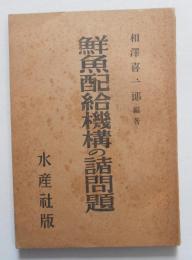 相澤喜一郎 編著
鮮魚配給機構の諸問題
水産社版